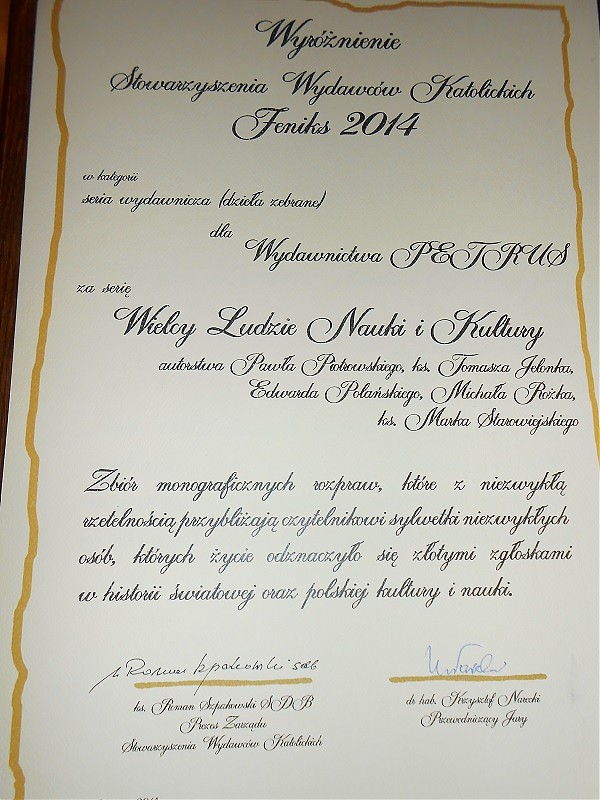 Wyróżnienie
Stowarzyszenia Wydawców Katolickich
Feniks 2014
w kategorii
seria wydawnicza (dzieła zebrane)
dla
Wydawnictwa PETRUS
za serię
Wielcy Ludzie Nauki i Kultury
autorstwa Pawła Piotrowskiego, ks. Tomasza Jelonka,
Edwarda Polańskiego, Michała Rożka,
ks. Marka Starowieyskiego
Zbiór monograficznych rozpraw, które z niezwykłą
rzetelnością przybliżają czytelnikowi sylwetki niezwykłych
osób, których życie odznaczyło się złotymi zgłoskami
w historii światowej oraz polskiej kultury i nauki.
ks. Roman Szpakowski SDB
Prezes Zarządu
Stowarzyszenia Wydawców Katolickich
dr hab. Krzysztof Narecki
Przewodniczący Jury